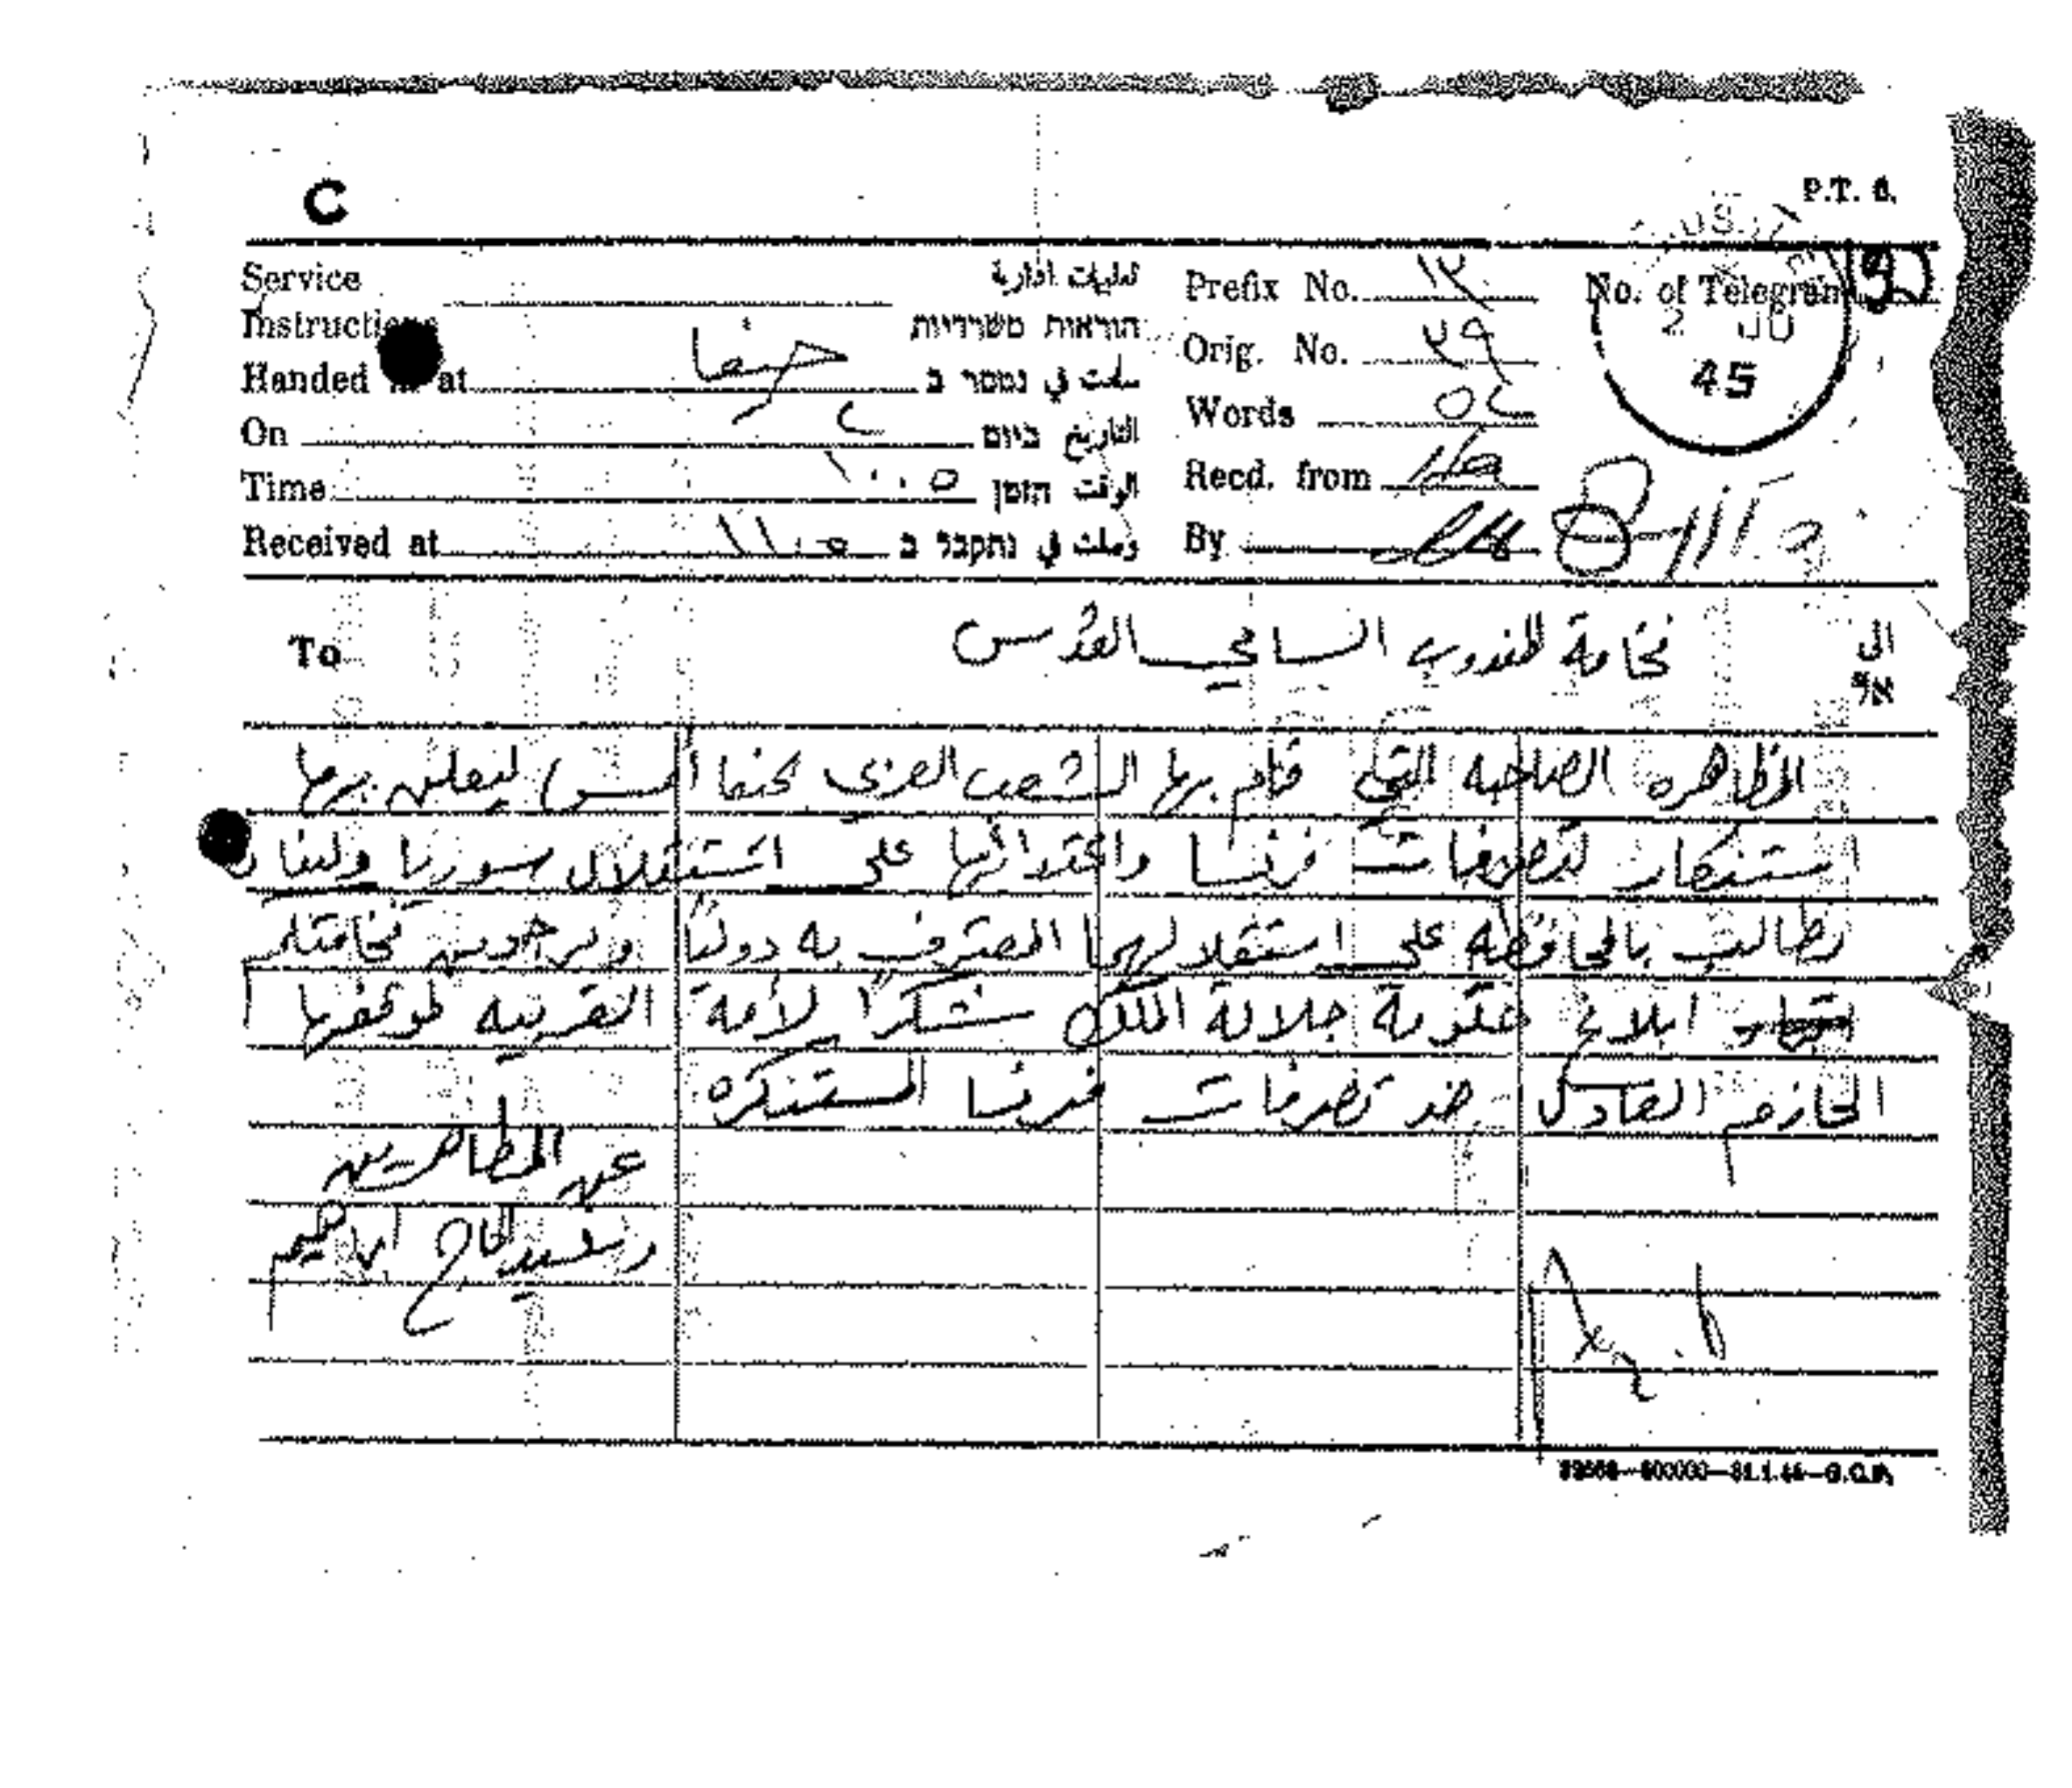 C
P.T. 6.
Service تعليمات ادارية
Instructions הוראות משרדיות
Handed in at حيفا سلمت في נמסר ב
On ٢ التاريخ ביום
Time ١٠٠٥ الوقت הזמן
Received at ١١٠٥ وصلت في נתקבל ב
Prefix No. ١٢
Orig. No. ٢٩
Words ٥٤
Recd. from
By
No. of Telegram
2 JU
45
To فخامة المندوب السامي القدس الى
אל
المظاهره الصاخبه التي قام بها الشعب العربي بحيفا امس ليعلن بها
استنكار لتصرفات فرنسا واعتدائها على استقلال سوريا ولبنان
تطالب بالمحافظه على استقلالهما المعترف به دوليا ويرجون فخامتكم
ابلاغ حكومة جلالة الملك شكر الامة العربيه لموقفها
الحازم العادل ضد تصرفات فرنسا المستنكره
عن المتظاهرين
رشيد الحاج ابراهيم